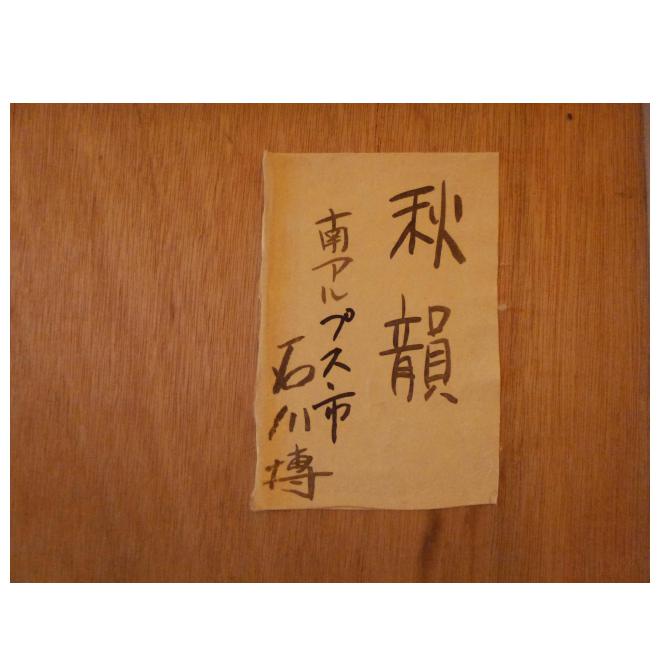 秋韻
南アルプス市
石川博